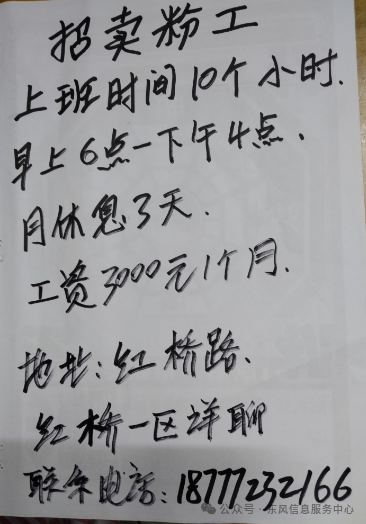 招卖粉工
上班时间10个小时.
早上6点一下午4点.
月休息3天.
工资3000元1个月.
地址:红桥路.
红桥一区详聊
联系电话:18777232166
公众号·东风信息服务中心